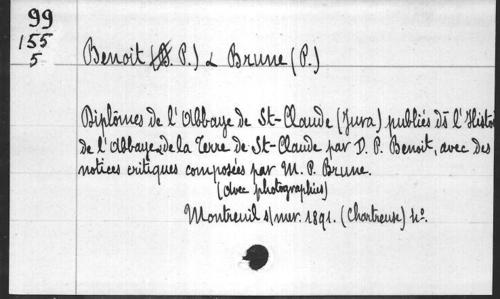 99
155
5
Benoit (D. P.) & Brune (P.)
Diplômes de l'Abbaye de St-Claude (Jura) publiés ds l'Histoi
de l'Abbaye & de la Terre de St-Claude par D. P. Benoit, avec des
notices critiques composées par M. P. Brune.
(avec photographies)
Montreuil s/mer. 1891. (Chartreuse) 4º.